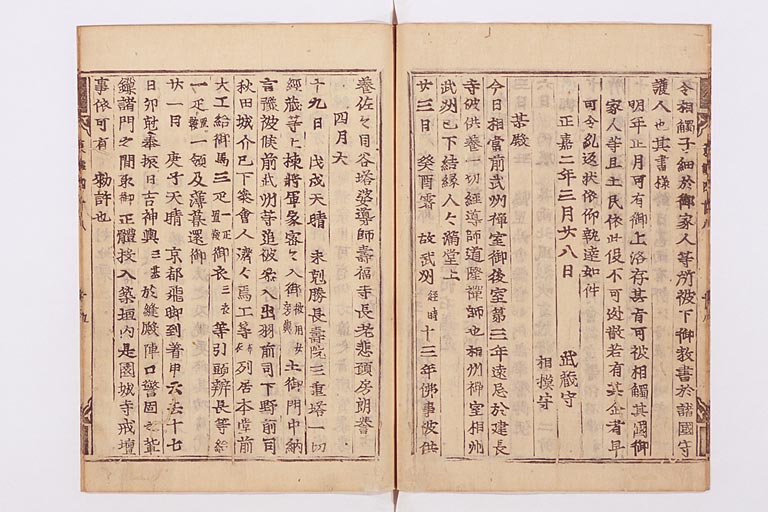 令相觸子細於御家人等所被下御教書於諸國守
護人也其書様
明年正月可有御上洛存其旨可被相觸其國御
家人等且土民依此役不可逃散若有其企者早
可令糺返状依仰執達如件
正嘉二年三月廿八日
武蔵守
相模守
某殿
今日相當前武州禅室御後室第三年遠忌於建長
寺被供養一切經導師道隆禅師也相州禅室相州
武州已下結縁人々満堂上
廿三日 癸酉霽 故武州經時十三年佛事被供
養佐々目谷塔婆導師壽福寺長老悲願房朗誉
四月大
十九日 戊戌天晴 未剋勝長壽院三重塔一切
經蔵等上棟将軍家密々入御被用女房輿土御門中納
言顕方候前武州等追被参入出羽前司下野前司
秋田城介已下羣會人済々焉工等列居本堂前
大工給御馬三疋一疋置鞍御衣三衣等引頭辨長等給
一疋一領及薄暮還御
廿一日 庚子天晴 京都飛脚到着申云去十七
日卯剋奉振日吉神輿三基於縫殿陣口警固之輩
鏁諸門之間取御正體投入築垣内是園城寺戒壇
事依可有 勅許也